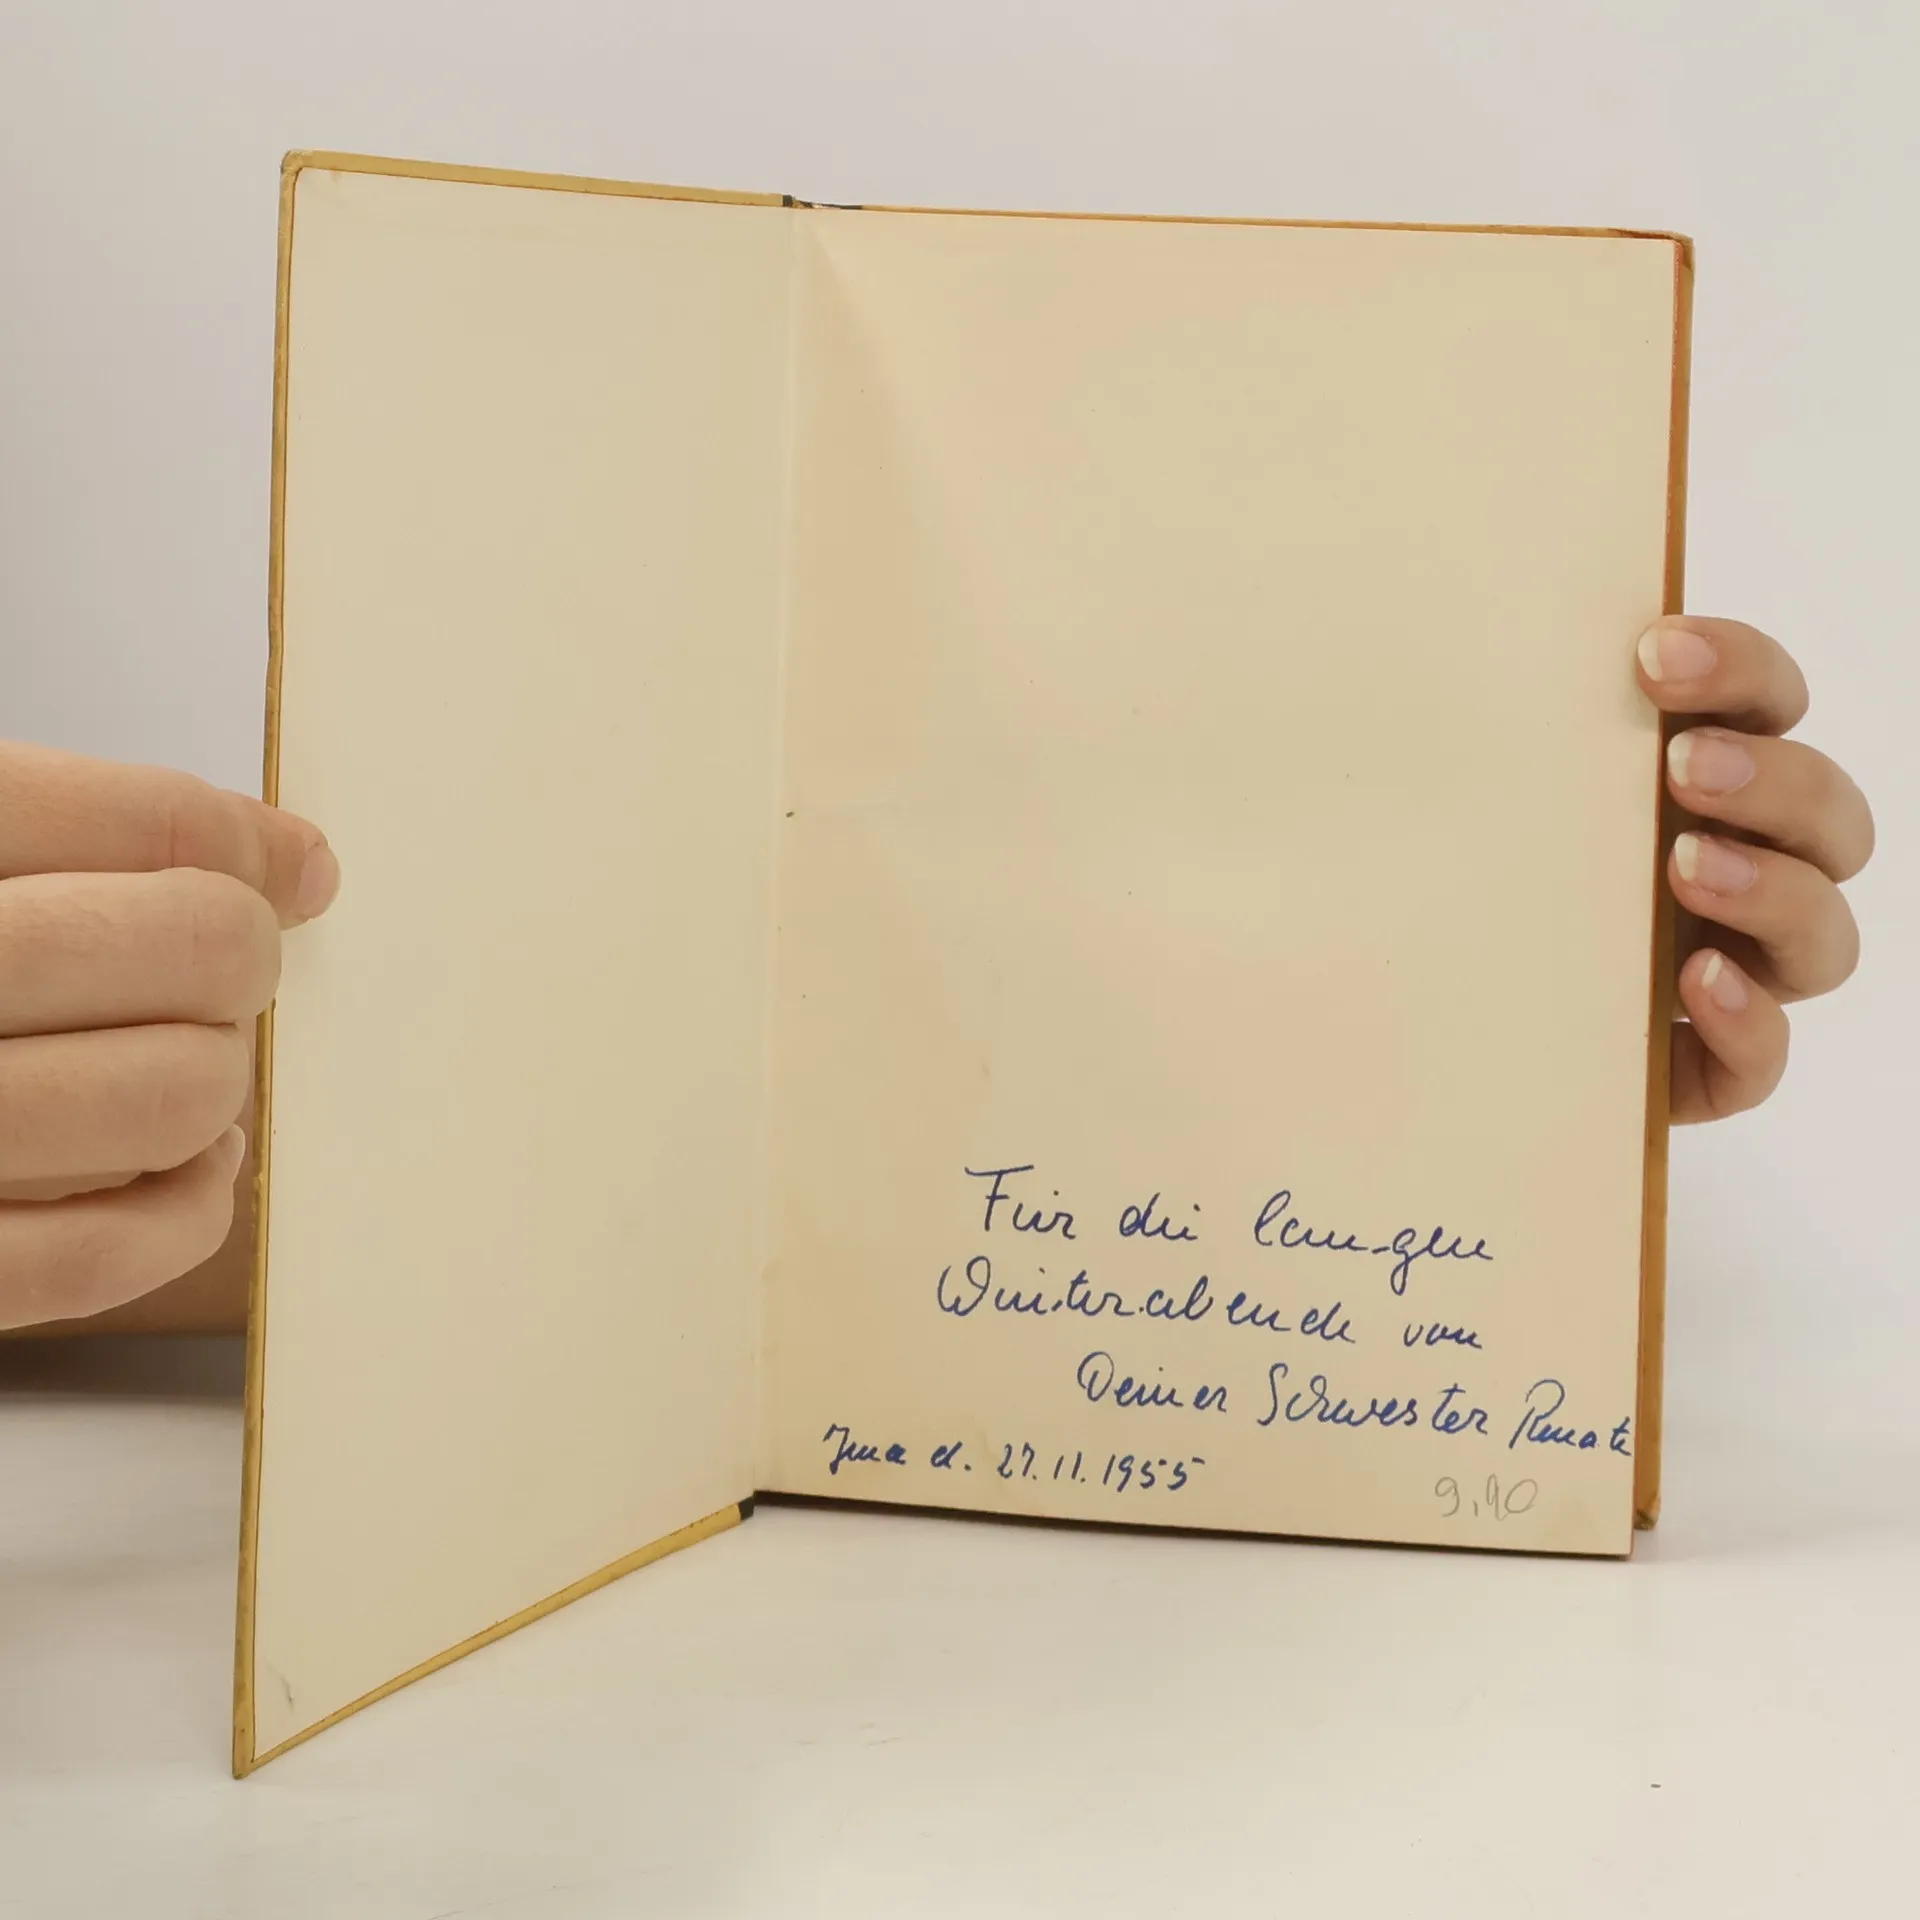 Für die langen
Winterabende von
Deiner Schwester Renate
Jena d. 27.11.1955
9,90